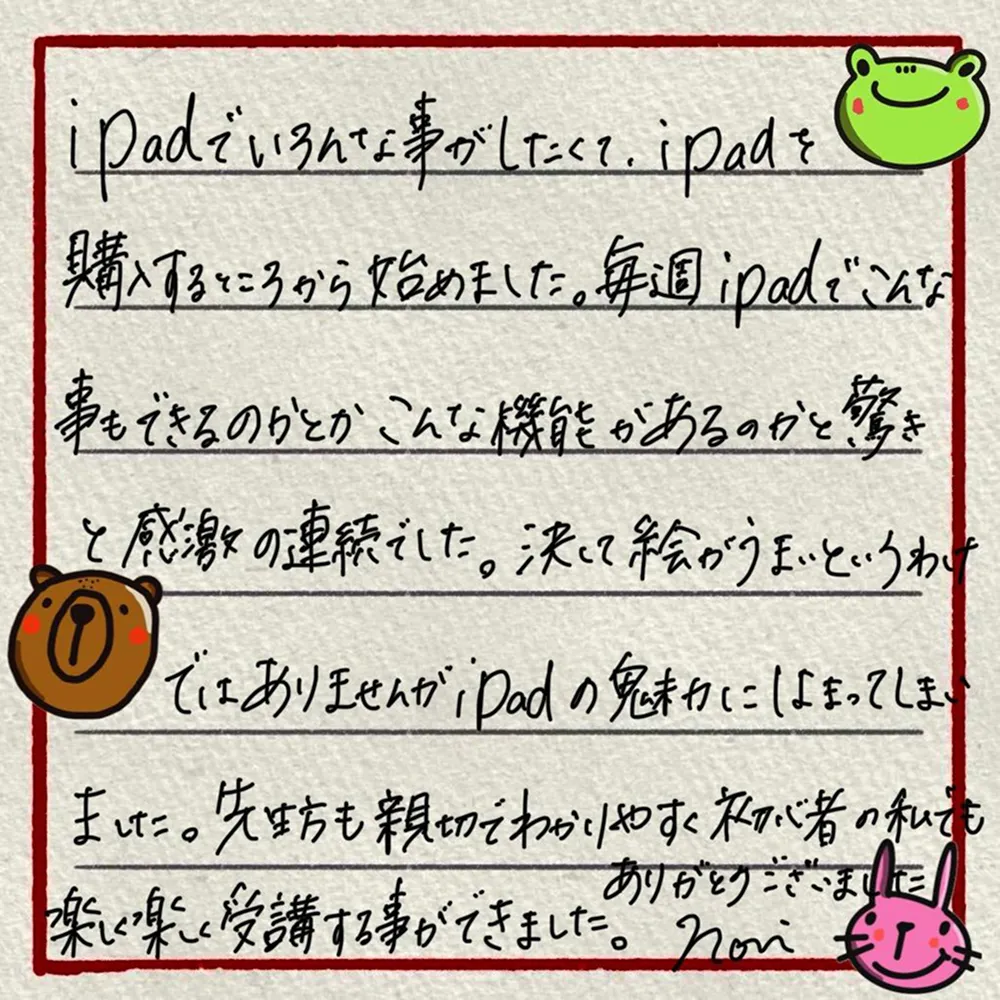 ipadでいろんな事がしたくて、ipadを
購入するところから始めました。毎週ipadでこんな
事もできるのかとかこんな機能があるのかと驚き
と感激の連続でした。決して絵がうまいというわけ
ではありませんがiPadの魅力にはまってしまい
ました。先生方も親切でわかりやすく初心者の私でも
楽しく楽しく受講する事ができました。
ありがとうございました
Nori